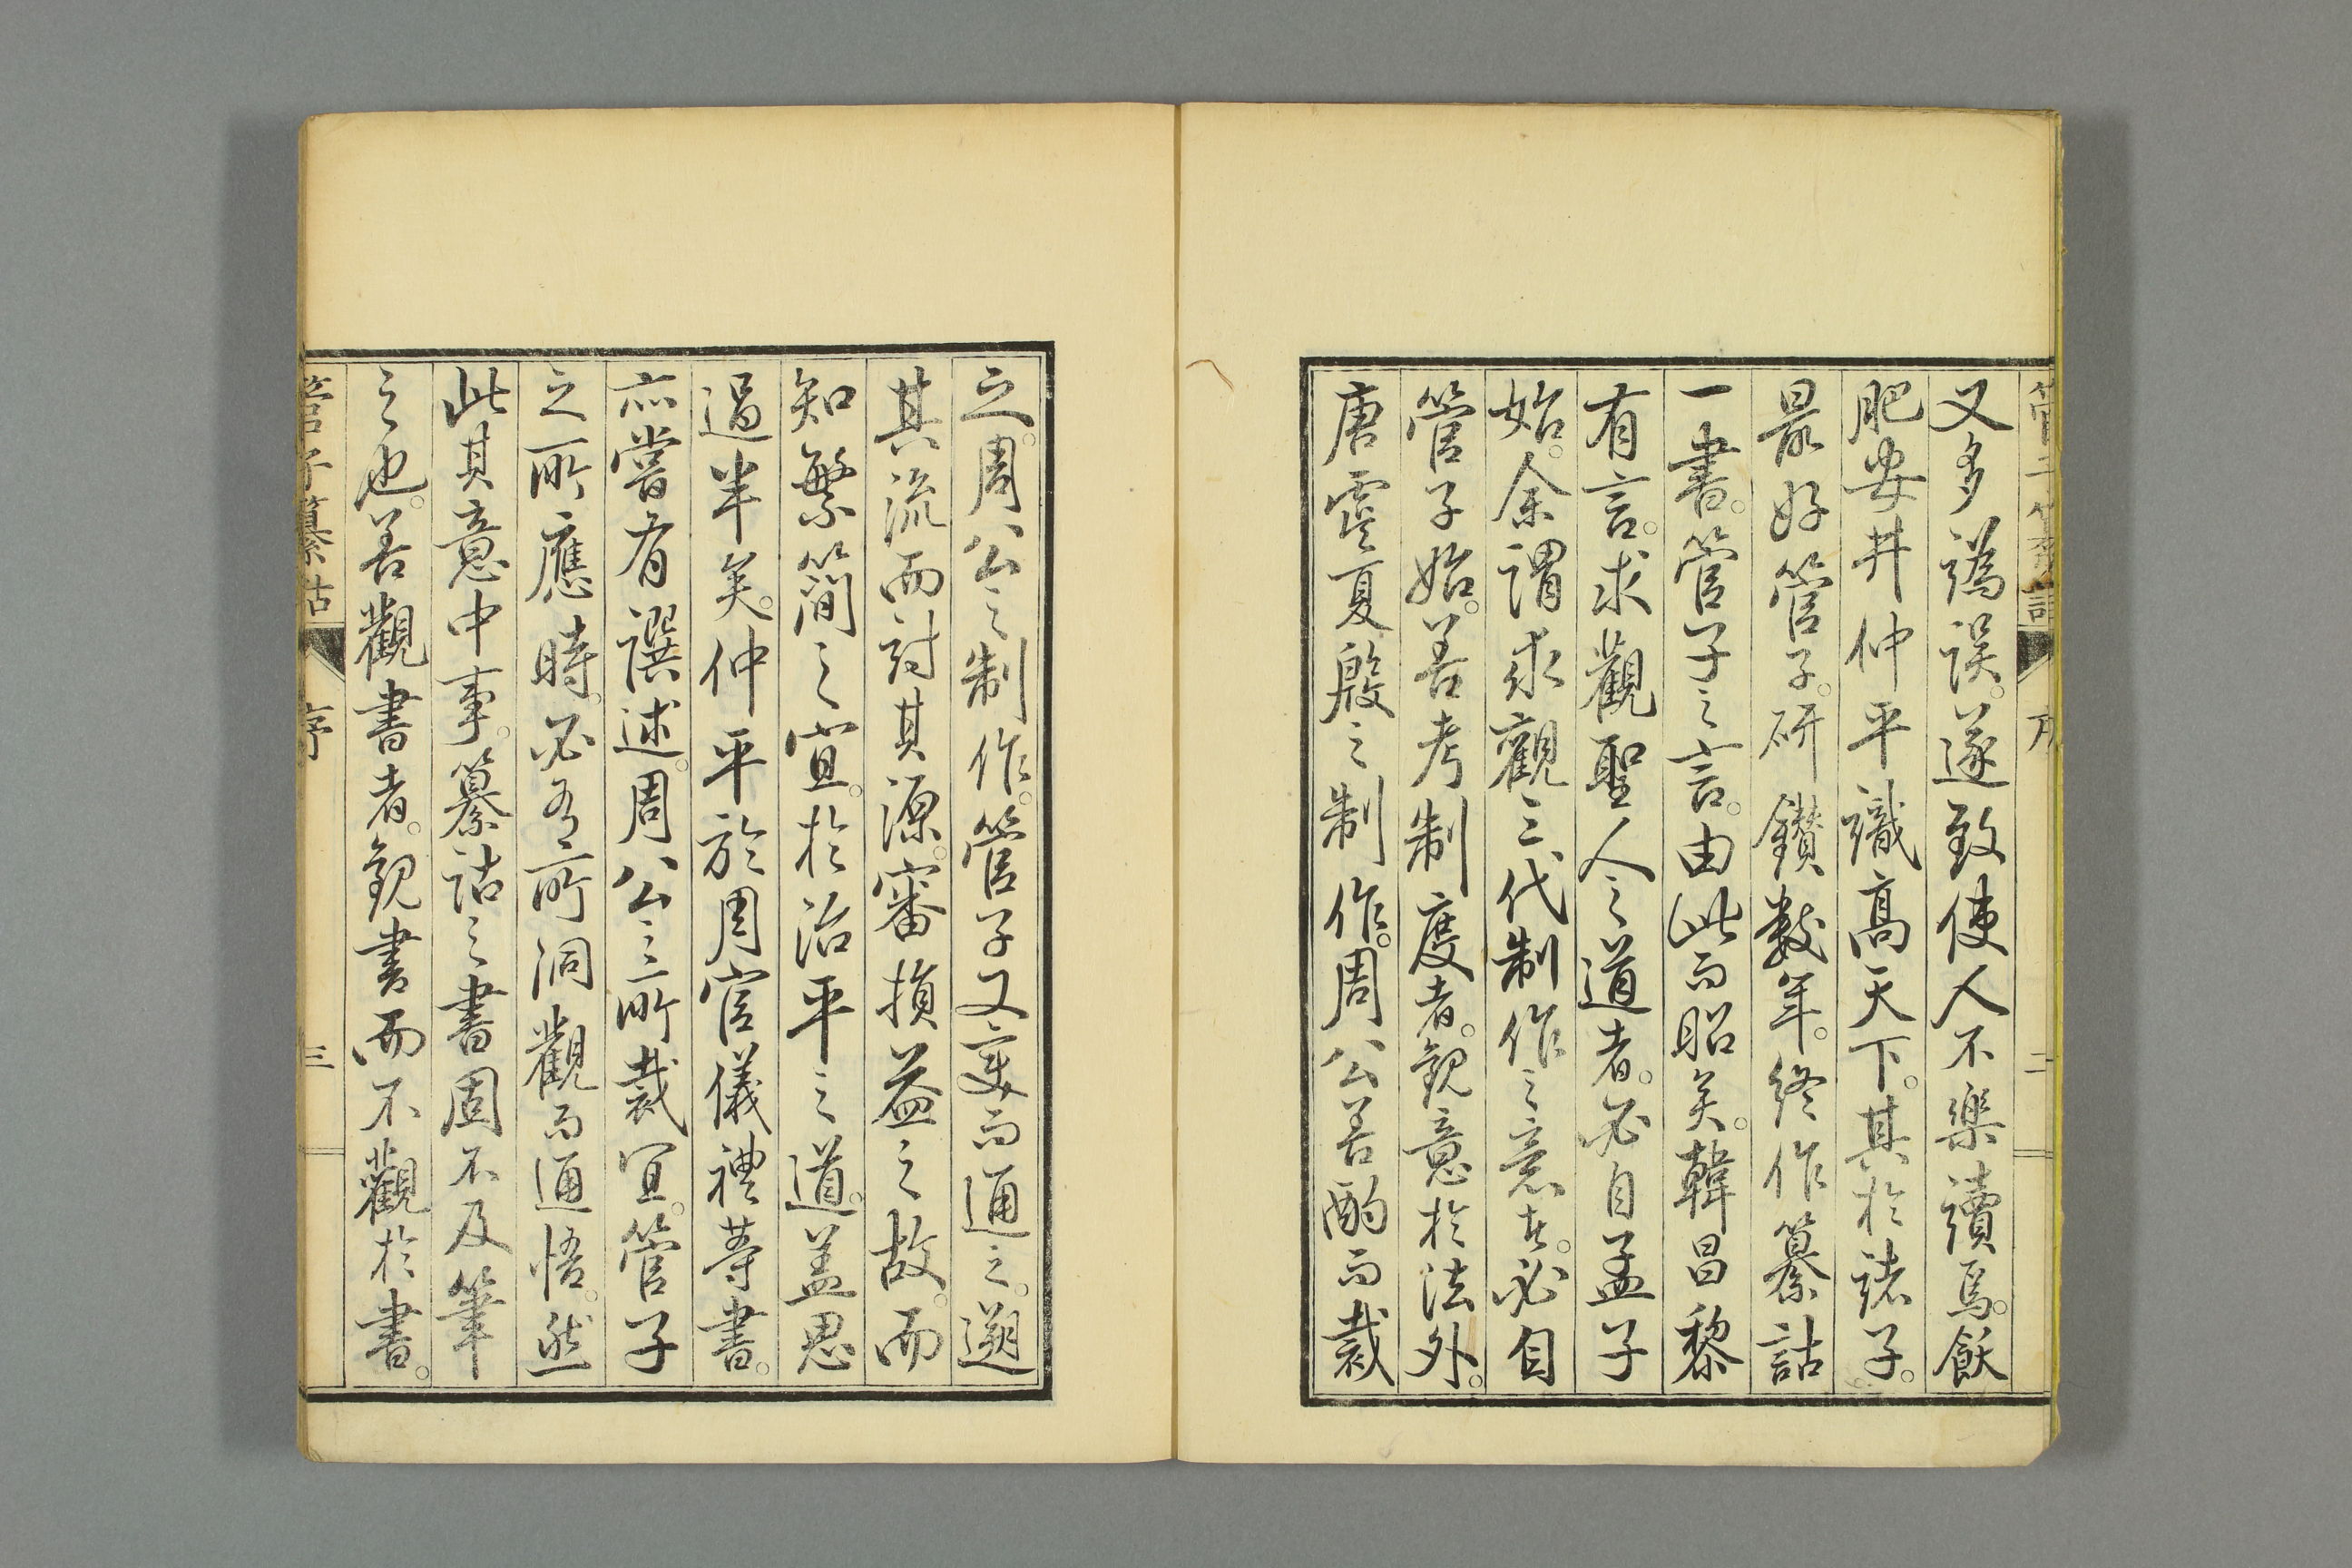 又多譌誤。遂致使人不樂讀焉。飫
肥安井仲平識高天下。其於諸子。
最好管子。研鑽數年。終作纂詁
一書。管子之言。由此而昭矣。韓昌黎
有言。求觀聖人之道者。必自孟子
始。余謂求觀三代制作之意者。必自
管子始。善考制度者。觀意於法外。
唐虞夏殷之制作。周公善酌而裁
之。周公之制作。管子又變而通之。遡
其流而討其源。審損益之故。而
知繁簡之宜。於治平之道。盖思
過半矣。仲平於周官儀禮等書。
亦嘗有譔述。周公之所裁宜。管子
之所應時。必有所洞觀而通悟。然
此其意中事。纂詁之書固不及筆
之也。善觀書者。觀書而不觀於書。
管子纂詁
序
三